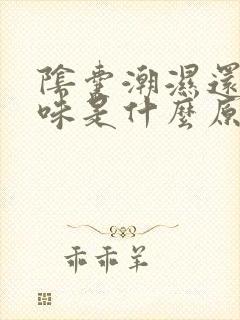 陰囊潮濕還
味是什麼原
乖乖羊